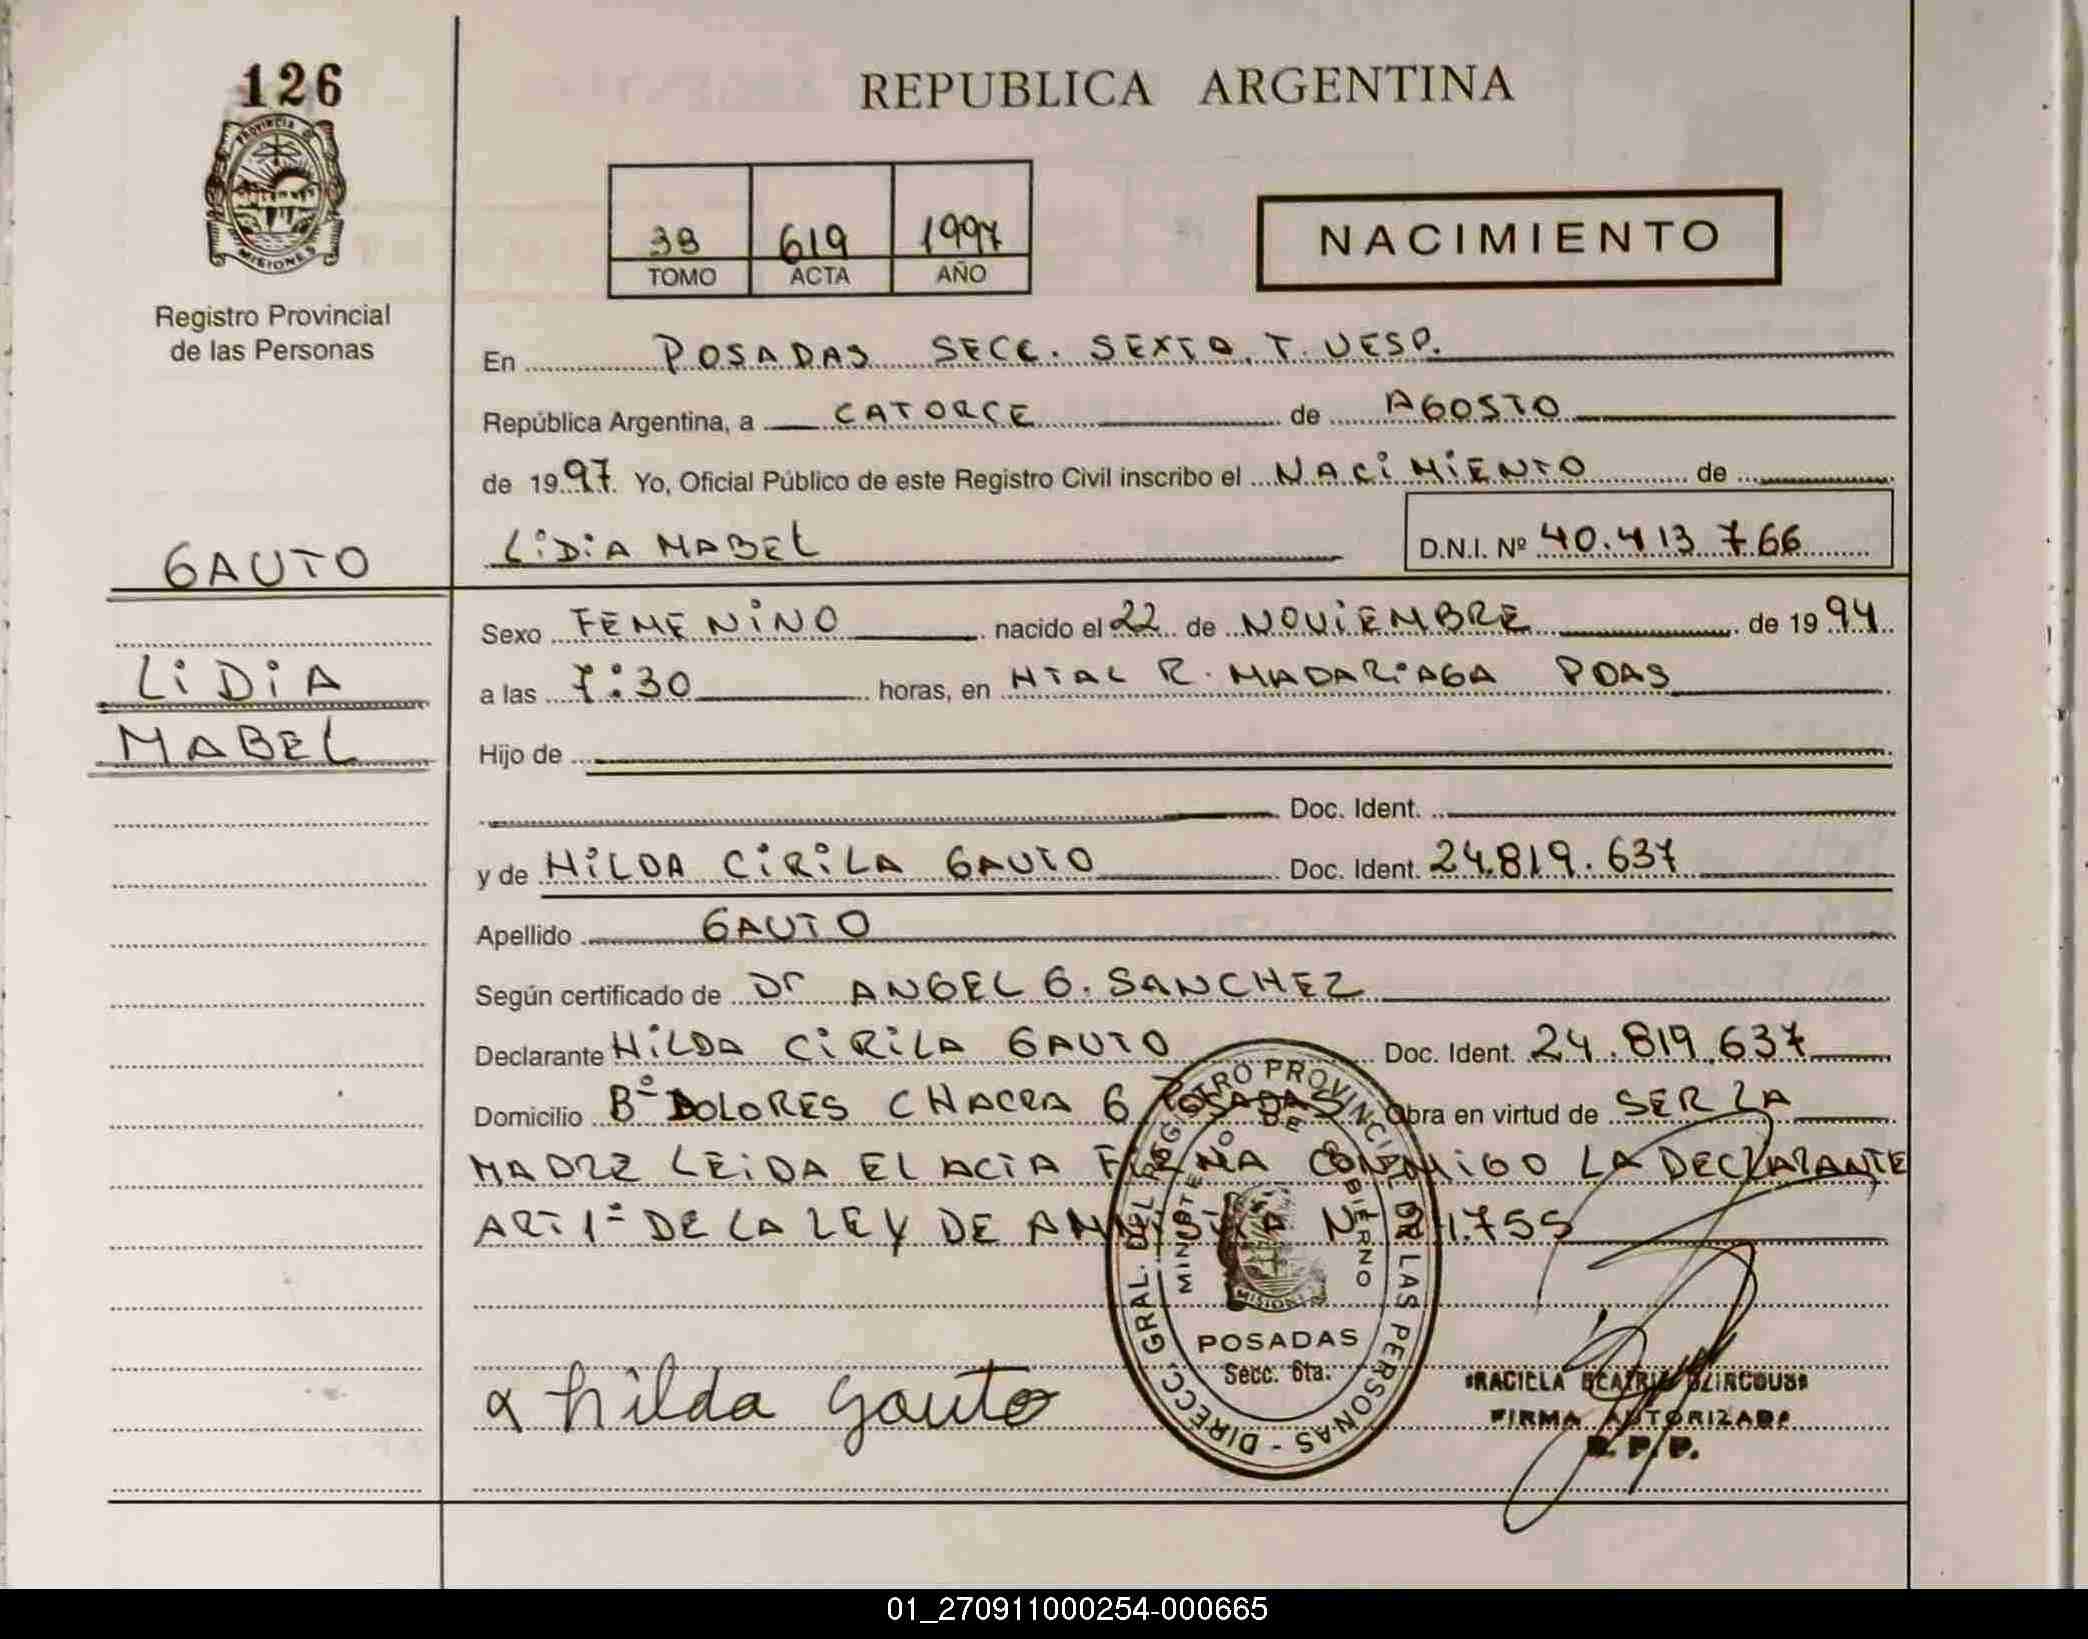 126
REPUBLICA ARGENTINA
PROVINCIA DE
MISIONES
Registro Provincial
de las Personas
39 619 1997
TOMO ACTA AÑO
NACIMIENTO
En POSADAS SECC. SEXTA. T. VESP.
República Argentina, a CATORCE de AGOSTO
de 1997 Yo, Oficial Público de este Registro Civil inscribo el NACIMIENTO de
LIDIA MABEL D.N.I. Nº 40.413.766
GAUTO
LIDIA
MABEL
Sexo FEMENINO nacido el 22 de NOVIEMBRE de 1994
a las 7:30 horas, en HTAL R. MADARIAGA PDAS
Hijo de
Doc. Ident.
y de HILDA CIRILA GAUTO Doc. Ident. 24.819.637
Apellido GAUTO
Según certificado de Dr ANGEL G. SANCHEZ
Declarante HILDA CIRILA GAUTO Doc. Ident. 24.819.637
Domicilio Bº DOLORES CHACRA 6 POSADAS Obra en virtud de SER LA
MADRE LEIDA EL ACTA FIRMA CONMIGO LA DECLARANTE
ART 1º DE LA LEY DE Nº 24.755
DIRECC. GRAL. DEL REGISTRO PROVINCIAL DE LAS PERSONAS
MINISTERIO DE GOBIERNO
MISIONES
POSADAS
Secc. 6ta.
hilda gauto
BEATRIZ
FIRMA AUTORIZADA
R. P. P.
01_270911000254-000665